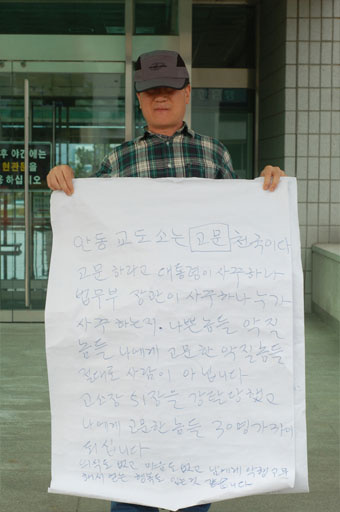 후 야간에는
현관문을
하십시오
안동 교도소는 고문 천국이다
고문 하라고 대통령이 사주하나
법무부 장관이 사주하나 누가
사주 하는지. 나쁜놈들 악질
놈들 나에게 고문한 악질놈들
절대로 사람이 아닙니다
고소장 51장을 강탈당했고
나에게 고문한 놈들 30명가량이
되십니다